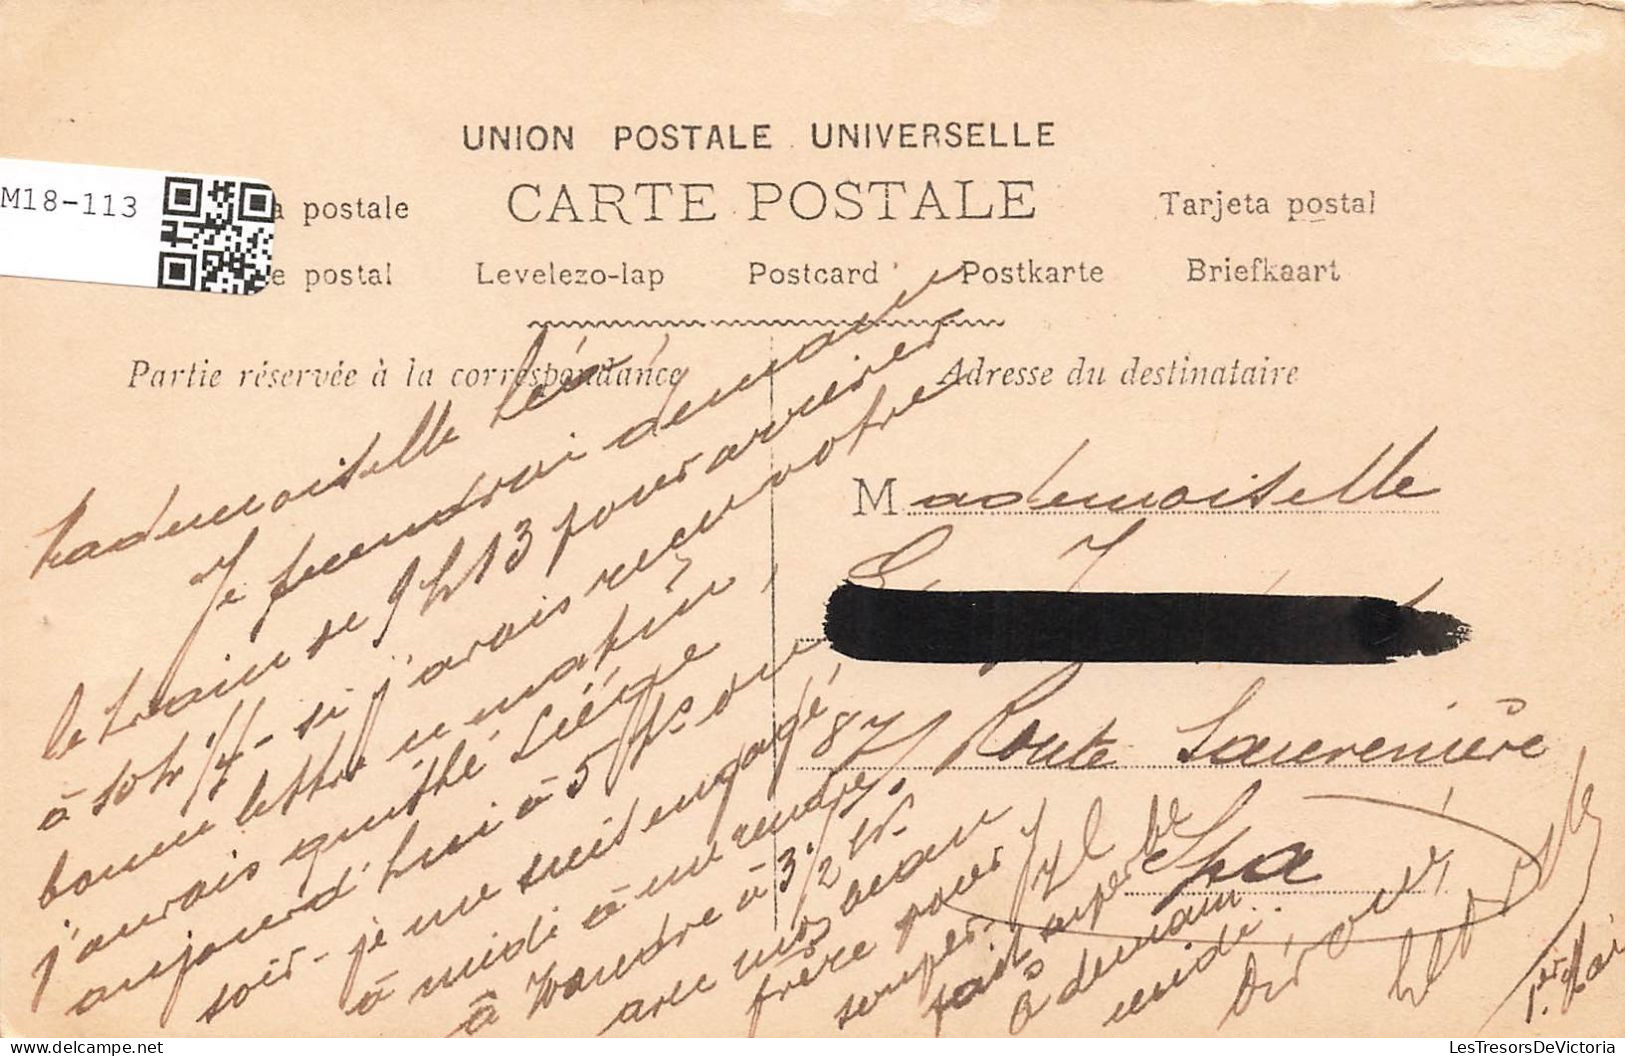 M18-113
UNION POSTALE UNIVERSELLE
a postale CARTE POSTALE Tarjeta postal
e postal Levelezo-lap Postcard Postkarte Briefkaart
Partie réservée à la correspondance
Adresse du destinataire
Mademoiselle Léa,
Je prendrai demain
le train de 9 h 13 pour arriver
à 10 h 1/4 - si j'avais reçu votre
bonne lettre ce matin,
j'aurais quitté Liége
aujourd'hui à 5 h. du
soir - je me suis engagé,
à midi à me rendre
à Wandre à 3 1/2 h.
avec mon beau
frère pour
souper.
fait superbe
à demain
midi.
Mademoiselle
87 Route Sauvenière
Spa
1er Mai
LesTresorsDeVictoria.com